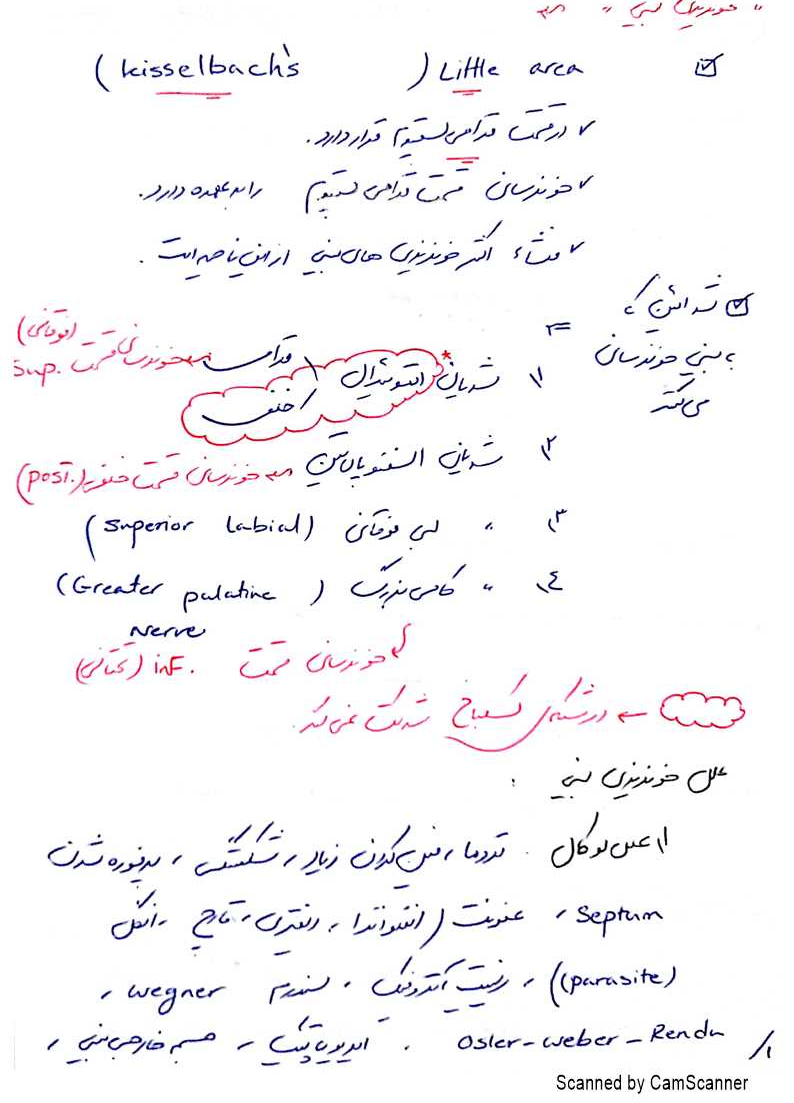 " خونریزی بینی "
☑ Little area (kisselbach's)
✓ در قسمت قدامی سپتوم قرار دارد.
✓ خونرسانی قسمت قدامی سپتوم را به عهده دارد.
✓ منشاء اکثر خونریزی های بینی از این ناحیه است.
☑ شرائینی که به بینی خونرسانی می‌کنند =
۱) شریان اتموئیدال * قدامی خونرسانی قسمت (فوقانی) Sup.
خلفی
۲) شریان اسفنوپالاتین خونرسانی قسمت خلفی (post.)
۳) " لبی فوقانی (Superior Labial)
۴) " کامی بزرگ (Greater palatine Nerve)
خونرسانی قسمت inf. (تحتانی)
← در شبکه‌ی کیسلباخ شرکت نمی‌کند.
علل خونریزی بینی :
۱) علل لوکال . تروما ، فین کردن زیاد ، شکستگی ، پرفوره شدن
Septum ، عفونت (انفلوانزا ، دیفتری ، قارچ ، انگل
(parasite)) ، رینیت آتروفیک ، سندرم wegner ،
Osler-weber-Rendu . ایدیوپاتیک ، جسم خارجی بینی ،
۱/
Scanned by CamScanner